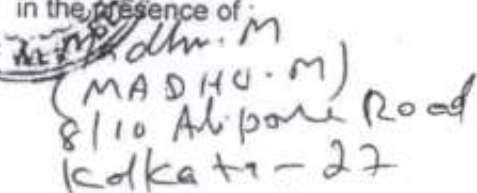 in the presence of :
Madhu. M
(MADHU. M)
8/10 Alipore Road
Kolkata - 27